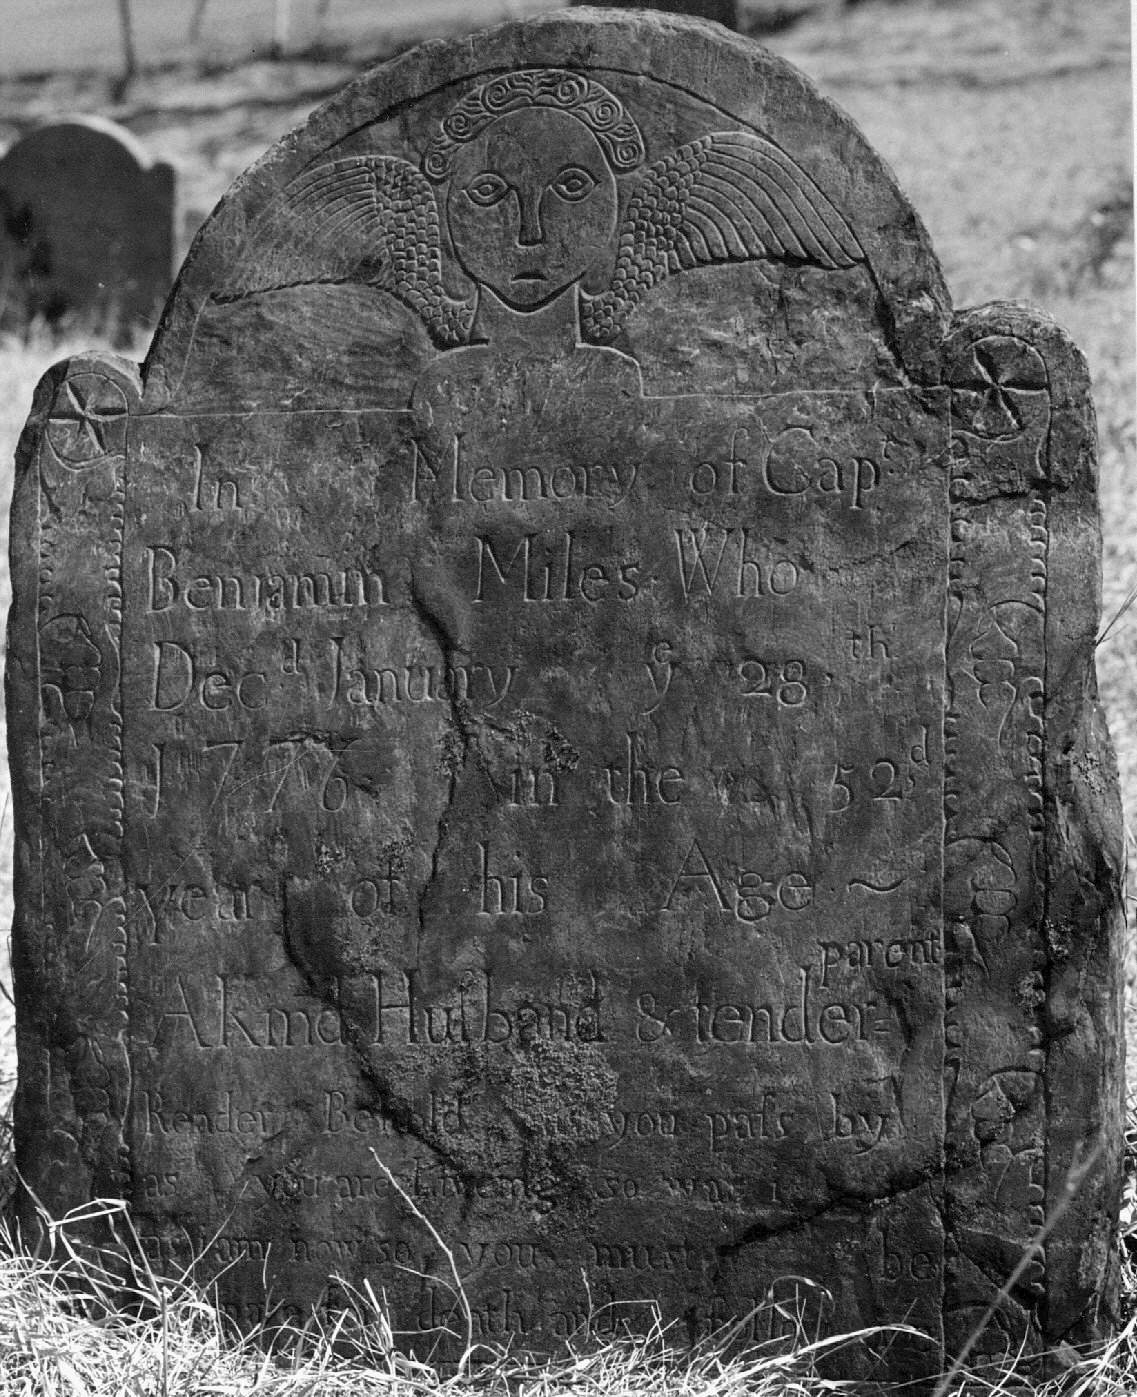 In Memory of Capᵗ
Benjamin Miles Who
Decᵈ January yᵉ 28ᵗʰ
1776 in the 52ᵈ
year of his Age ~
parent
A kind Huſband & tender
Reader Behold as you paſs by
as you are liveing so was i
as i am now so you must be
prepare for death and follow